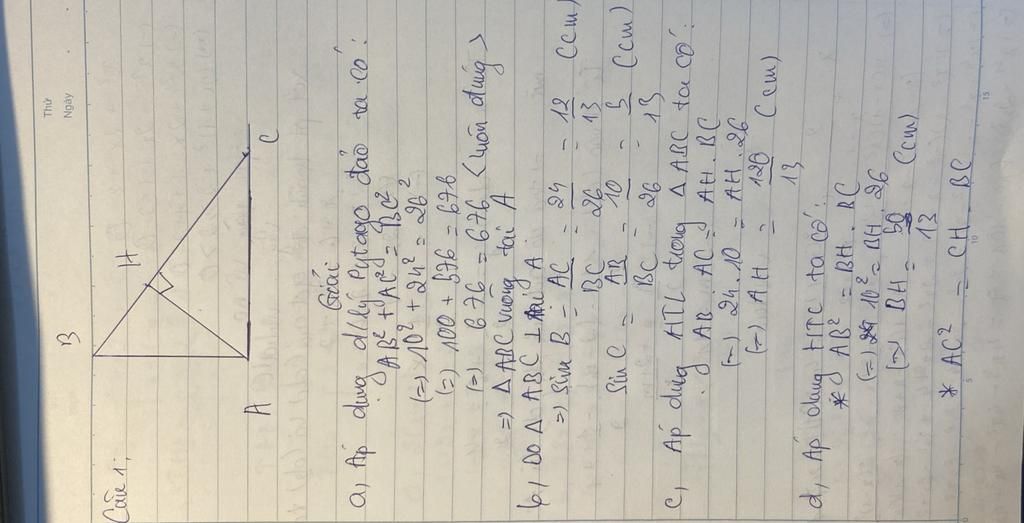 Thứ
Ngày
Câu 1:
B
H
A
C
Giải
a, Áp dụng đ/lý Pytago đảo ta có:
AB² + AC² = BC²
(=) 10² + 24² = 26²
(=) 100 + 576 = 676
(=) 676 = 676 < luôn đúng >
=> Δ ABC vuông tại A
b, Do Δ ABC ⊥ tại A
=> Sin B = AC/BC = 24/26 = 12/13 (cm)
Sin C = AB/BC = 10/26 = 5/13 (cm)
c, Áp dụng HTL trong Δ ABC ta có:
AB . AC = AH . BC
(=) 24 . 10 = AH . 26
(=) AH = 120/13 (cm)
d, Áp dụng HTC ta có:
* AB² = BH . BC
(=) 10² = BH . 26
(=) BH = 50/13 (cm)
* AC² = CH . BC
5
10
15